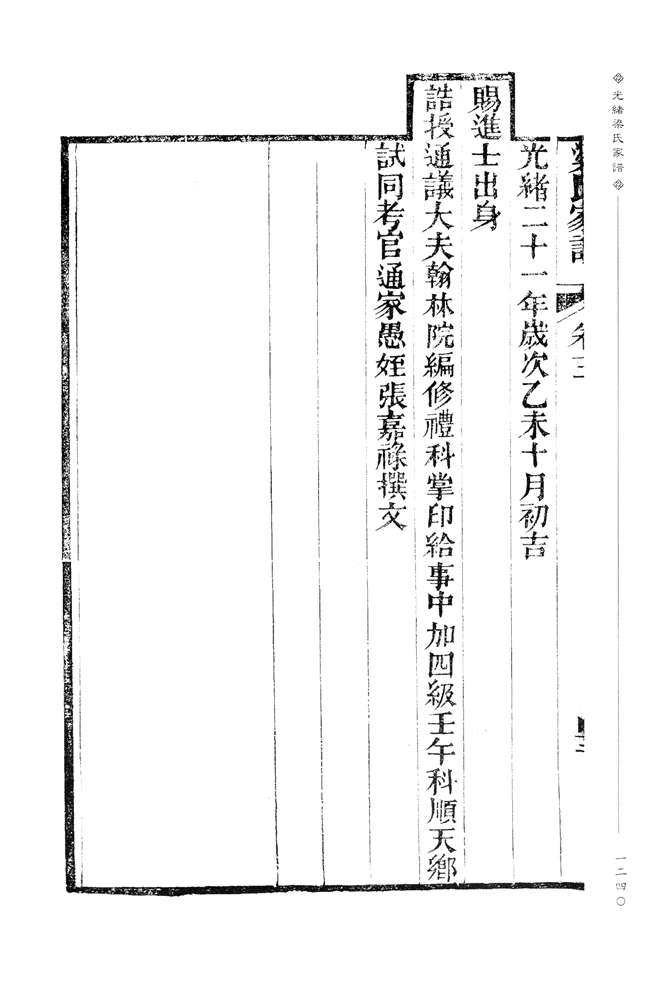 光緒梁氏家譜
梁氏家譜 卷三
光緒二十一年歲次乙未十月初吉
賜進士出身
誥授通議大夫翰林院編修禮科掌印給事中加四級壬午科順天鄉
試同考官通家愚姪張嘉祿撰文
一二四〇